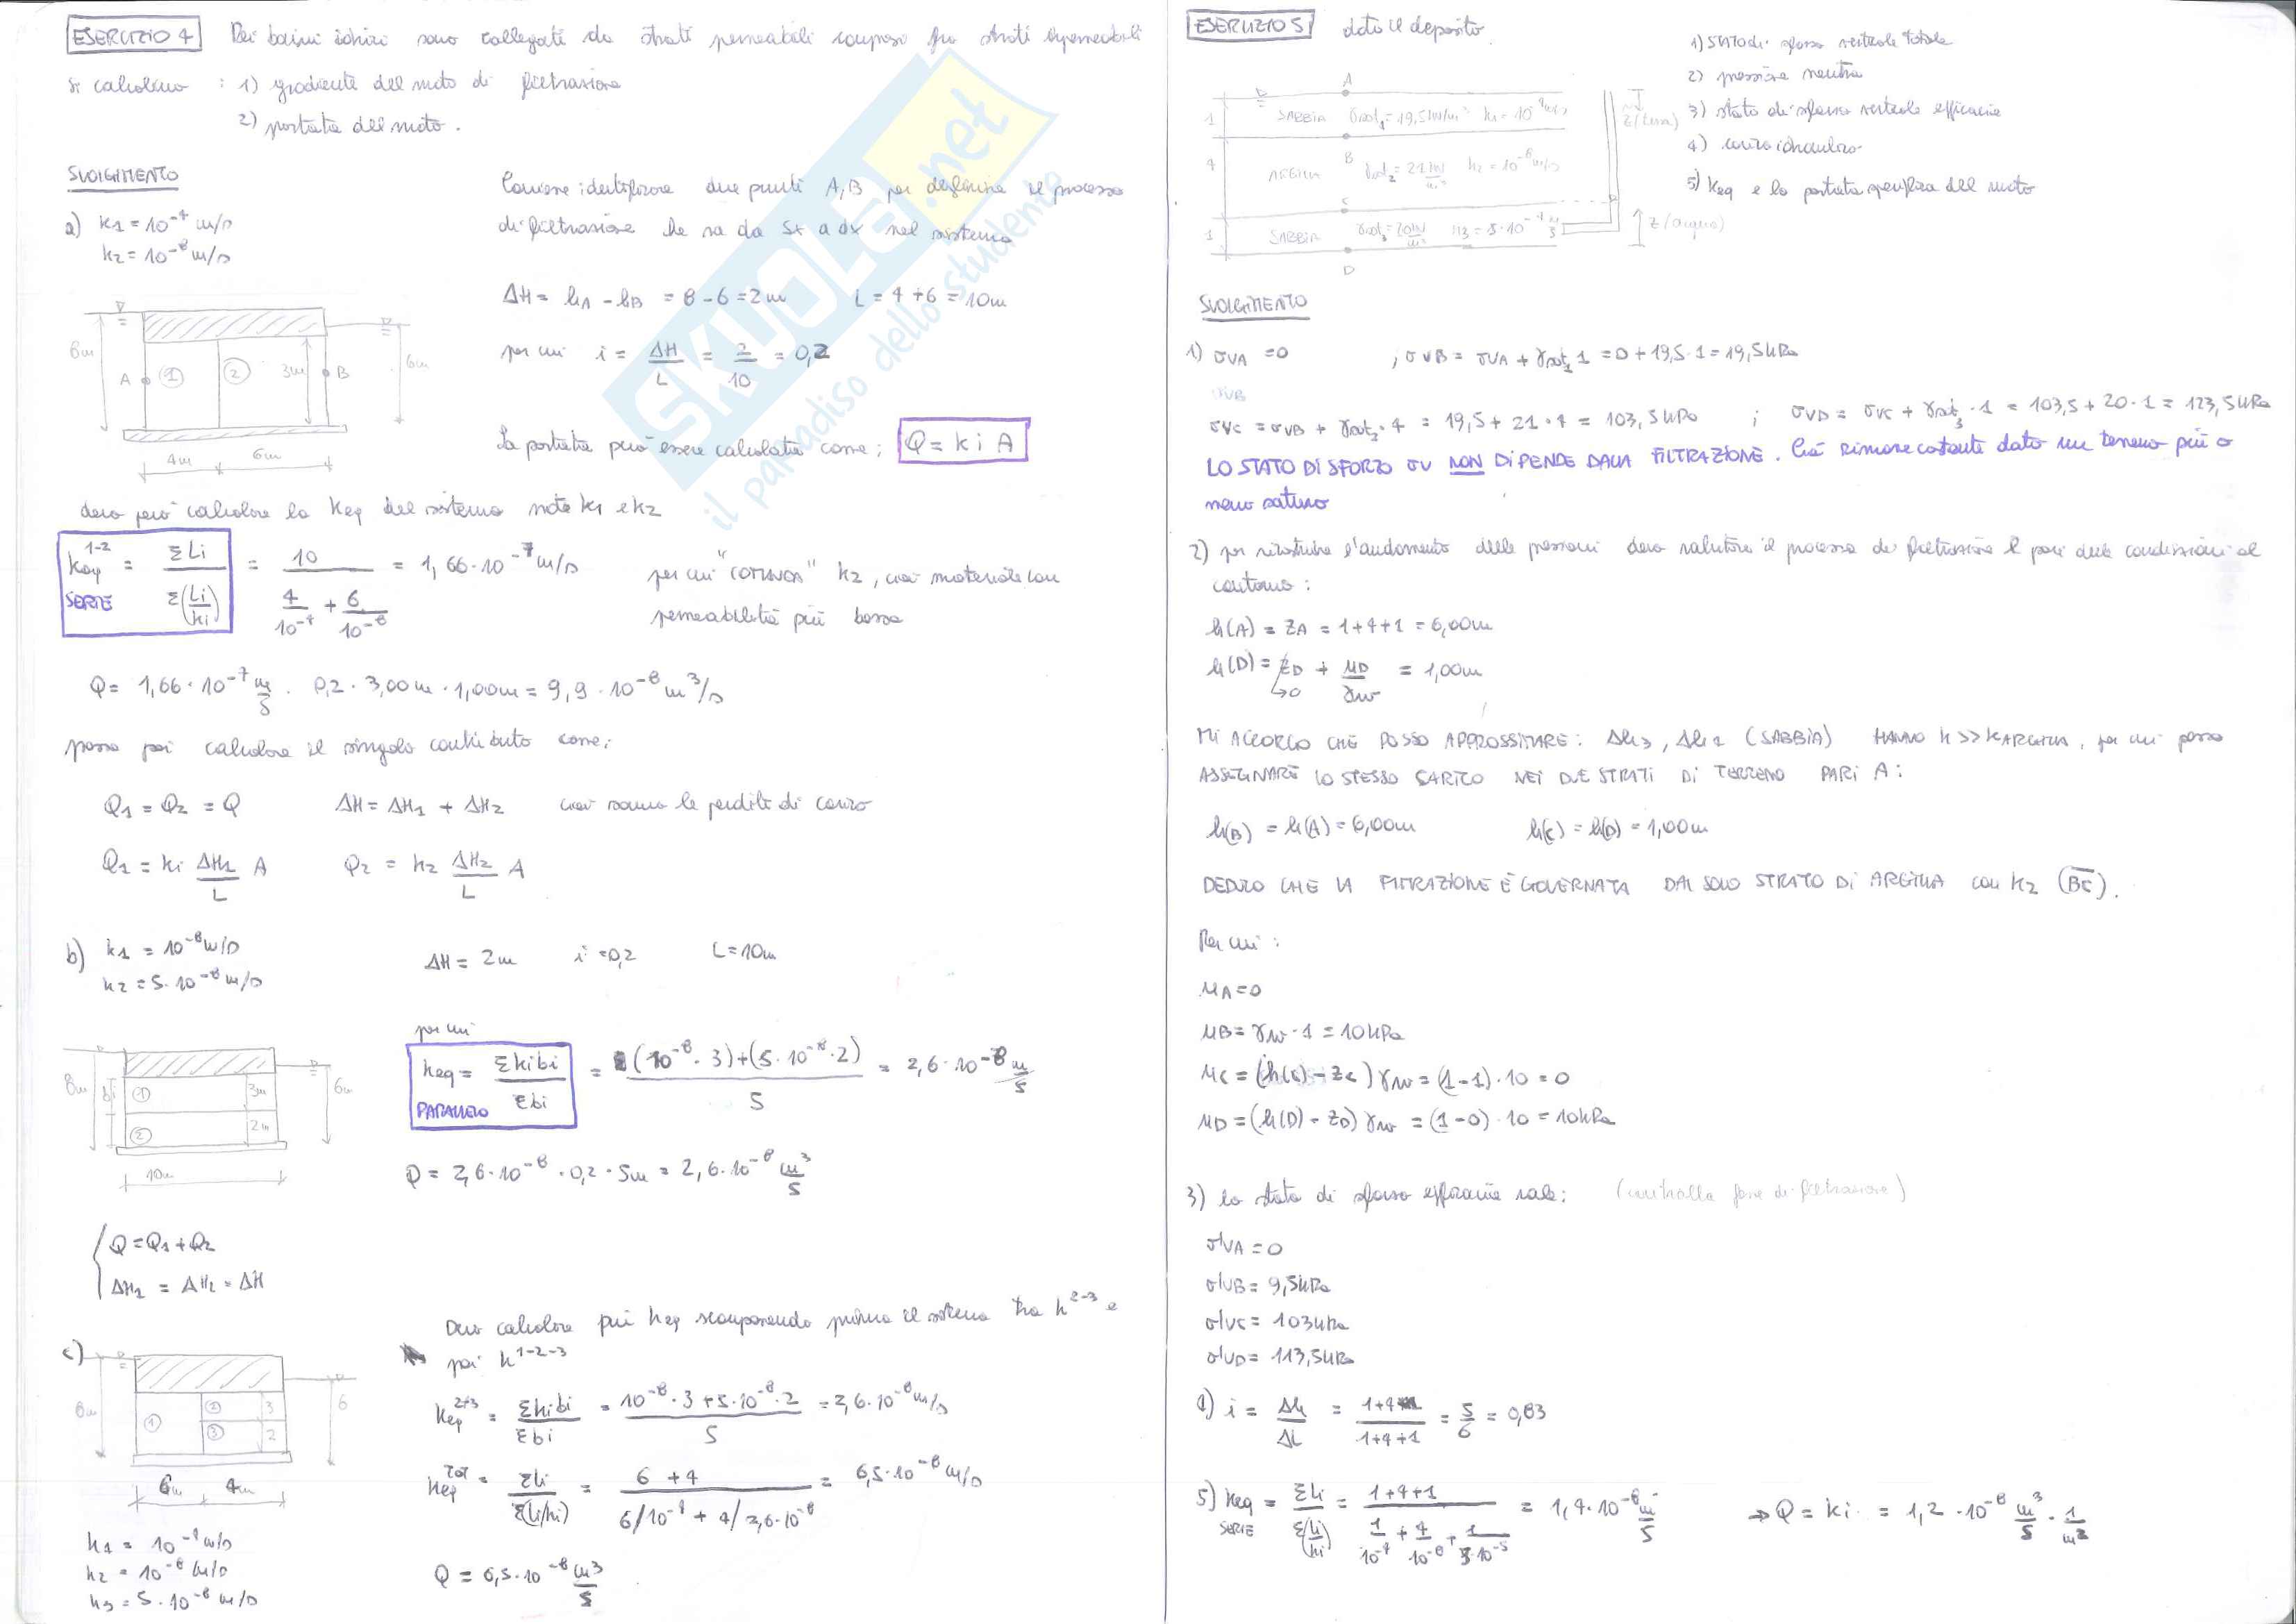 ESERCIZIO 4 Dei bacini idrici sono collegati da strati permeabili compresi fra strati impermeabili
si calcolino : 1) gradiente del moto di filtrazione
2) portata del moto.
SVOLGIMENTO
a) k1 = 10⁻⁴ m/s
k2 = 10⁻⁸ m/s
Conviene identificare due punti A, B per definire il processo
di filtrazione che va da sx a dx nel sistema
ΔH = hA - hB = 8 - 6 = 2m L = 4 + 6 = 10m
per cui i = ΔH/L = 2/10 = 0,2
8m A 1 2 3m B 6m
4m 6m
La portata può essere calcolata come; Q = k i A
devo però calcolare la keq del sistema note k1 e k2
keq¹⁻² SERIE = ΣLi / Σ(Li/ki) = 10 / (4/10⁻⁴ + 6/10⁻⁸) = 1,66·10⁻⁷ m/s per cui "COMANDA" k2, cioè materiale con
permeabilità più bassa
Q = 1,66·10⁻⁷ m/s · 0,2 · 3,00m · 1,00m = 9,9·10⁻⁸ m³/s
posso poi calcolare il singolo contributo come;
Q1 = Q2 = Q ΔH = ΔH1 + ΔH2 cioè sommo le perdite di carico
Q1 = ki ΔH1/L A Q2 = k2 ΔH2/L A
b) k1 = 10⁻⁸ m/s
k2 = 5·10⁻⁸ m/s
ΔH = 2m i = 0,2 L = 10m
per cui
keq PARALLELO = Σkibi / Σbi = ((10⁻⁸·3)+(5·10⁻⁸·2)) / 5 = 2,6·10⁻⁸ m/s
8m bi 1 3m 2 2m 6m
10m
Q = 2,6·10⁻⁸ · 0,2 · 5m = 2,6·10⁻⁸ m³/s
Q = Q1 + Q2
ΔH1 = ΔH2 = ΔH
Devo calcolare più keq scomponendo prima il sistema tra k²⁻³ e
poi k¹⁻²⁻³
c) 8m 1 2 3 3 2 6
6m 4m
keq²⁺³ = Σkibi / Σbi = (10⁻⁸·3+5·10⁻⁸·2) / 5 = 2,6·10⁻⁸ m/s
keqᵀᴼᵀ = ΣLi / Σ(Li/ki) = (6 + 4) / (6/10⁻⁴ + 4/2,6·10⁻⁸) = 6,5·10⁻⁸ m/s
k1 = 10⁻⁴ m/s
k2 = 10⁻⁸ m/s
k3 = 5·10⁻⁸ m/s
Q = 6,5·10⁻⁸ m³/s
ESERCIZIO 5 dato il deposito
1) stato di sforzo verticale totale
2) pressione neutra
3) stato di sforzo verticale efficace
4) carico idraulico
5) keq e la portata specifica del moto
A
1 SABBIA γsat1 = 19,5 kN/m³ k1 = 10⁻⁴ m/s z (terra)
B
4 ARGILLA γsat2 = 21 kN/m³ k2 = 10⁻⁸ m/s
C
1 SABBIA γsat3 = 20 kN/m³ k3 = 5·10⁻⁴ m/s z (acqua)
D
SVOLGIMENTO
1) σVA = 0 ; σVB = σVA + γsat1·1 = 0 + 19,5·1 = 19,5 kPa
σVB
σVC = σVB + γsat2·4 = 19,5 + 21·4 = 103,5 kPa ; σVD = σVC + γsat3·1 = 103,5 + 20·1 = 123,5 kPa
LO STATO DI SFORZO σV NON DIPENDE DALLA FILTRAZIONE. Ciò rimane costante dato un terreno più o
meno saturo
2) per ricostruire l'andamento delle pressioni devo valutare il processo di filtrazione e poi delle condizioni al
contorno :
h(A) = ZA = 1+4+1 = 6,00m
h(D) = ZD + μD/γw = 1,00m
→0
MI ACCORGO CHE POSSO APPROSSIMARE: Δh3, Δh1 (SABBIA) HANNO K >> KARGILLA, per cui posso
ASSEGNARE LO STESSO CARICO NEI DUE STRATI DI TERRENO PARI A:
h(B) = h(A) = 6,00m h(C) = h(D) = 1,00m
DEDUCO CHE LA FILTRAZIONE È GOVERNATA DAL SOLO STRATO DI ARGILLA con k2 (BC).
Per cui :
μA = 0
μB = γw·1 = 10 kPa
μC = (h(C) - ZC) γw = (1-1)·10 = 0
μD = (h(D) - ZD) γw = (1-0)·10 = 10 kPa
3) lo stato di sforzo efficace vale: (controlla fare di filtrazione)
σ'VA = 0
σ'VB = 9,5 kPa
σ'VC = 103 kPa
σ'VD = 113,5 kPa
4) i = Δh/ΔL = 1+4 / 1+4+1 = 5/6 = 0,83
5) keq SERIE = ΣLi / Σ(Li/ki) = 1+4+1 / (1/10⁻⁴ + 4/10⁻⁸ + 1/5·10⁻⁵) = 1,4·10⁻⁸ m/s → Q = ki = 1,2·10⁻⁸ m³/s · 1/m²
SKUOLA.net
il paradiso dello studente